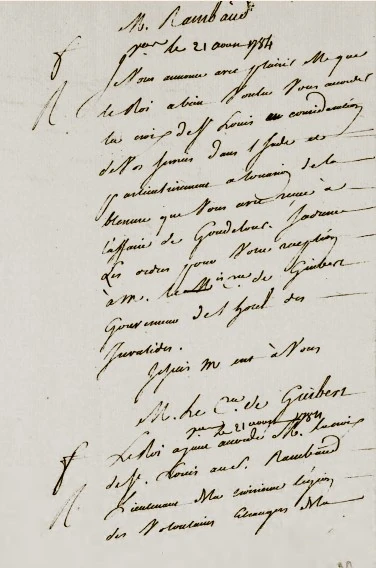 M. Rambaud
le 21 avril 1784
Je Vous annonce avec plaisir M que
le Roi a bien Voulu Vous accorder
la croix de St Louis en considération
de Vos services dans l'Inde et
particulièrement à l'occasion de la
blessure que Vous avez reçue à
l'affaire de Goudelour. J'adresse
Les ordres pour Votre réception
à M. le de Guibert
Gouverneur de l'hotel des
Invalides.
Je suis M ent à Vous
M. Le de Guibert
le 21 avril 1784
Le Roi ayant accordé M. la croix
de St. Louis au S. Rambaud
Lieutenant de la troisième légion
des Volontaires étrangers de la